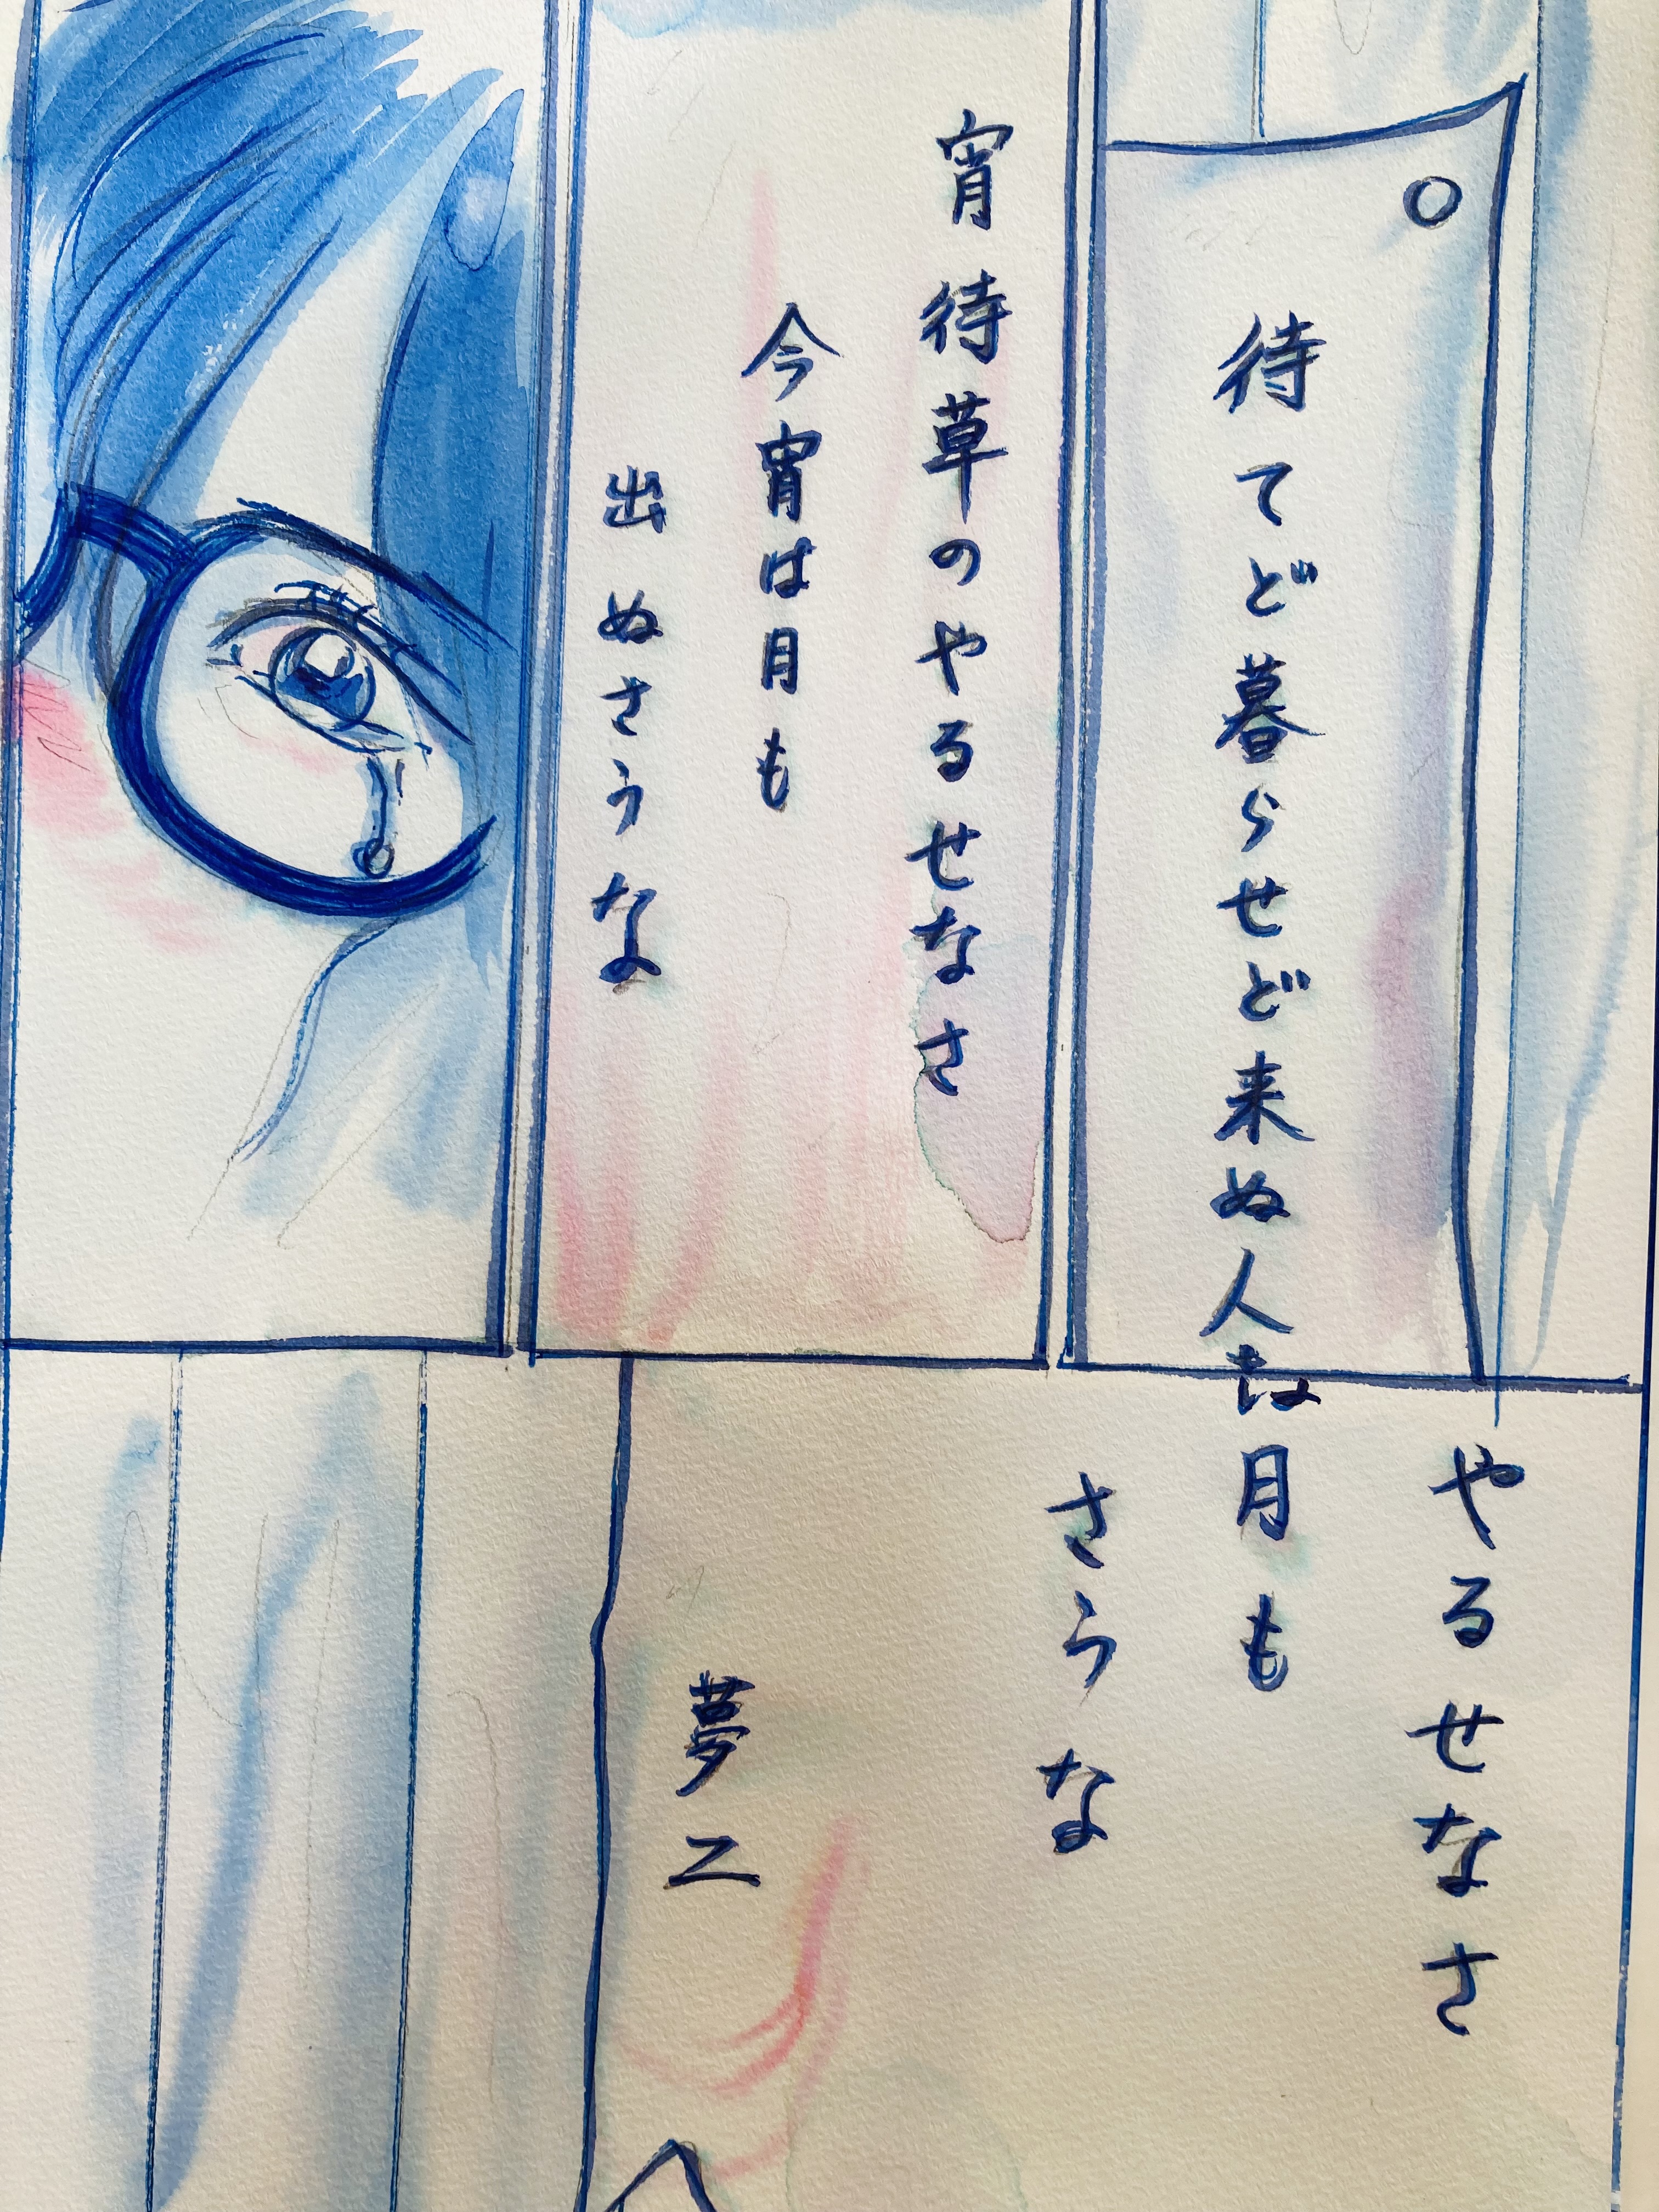 待てど暮らせど来ぬ人
宵待草のやるせなさ
今宵は月も
出ぬさうな
やるせなさ
は月も
さうな
夢二